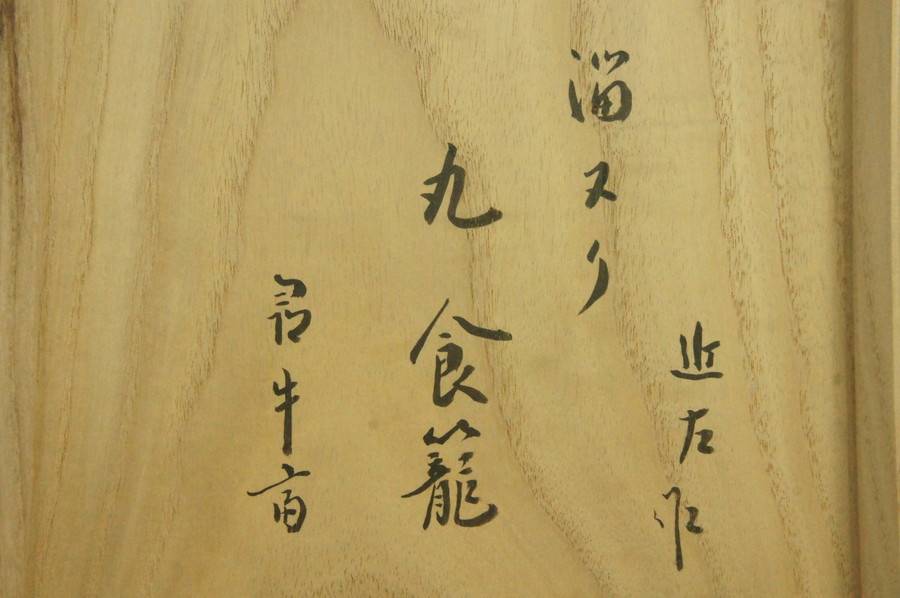 近左作
溜ヌリ
丸 食籠
尋牛斎